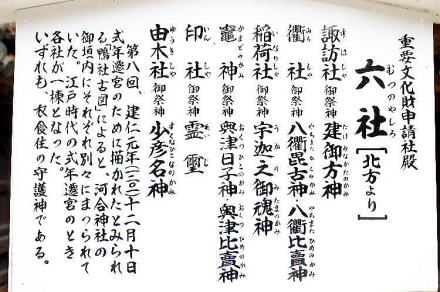 重要文化財申請社殿
六社[北方より]
むつのやしろ
諏訪社 御祭神 建御方神
すはしゃ たけみなかたのかみ
衢社 御祭神 八衢毘古神・八衢比賣神
みちしゃ やちまたひこのかみ やちまたひめのかみ
稲荷社 御祭神 宇迦之御魂神
いなりしゃ うかのみたまのかみ
竈神 御祭神 奥津日子神・奥津比賣神
かまどのかみ おくつひこのかみ おくつひめのかみ
印社 御祭神 霊璽
いんしゃ
由木社 御祭神 少彦名神
ゆうきしゃ すくなひこなのかみ
第八回、建仁元年(一二〇一)十二月十日
式年遷宮のために描かれたとみられ
る鴨社古図によると、河合神社の
御垣内にそれぞれ別々にまつられて
いた。江戸時代の式年遷宮のとき
各社が一棟となった。
いずれも、衣食住の守護神である。